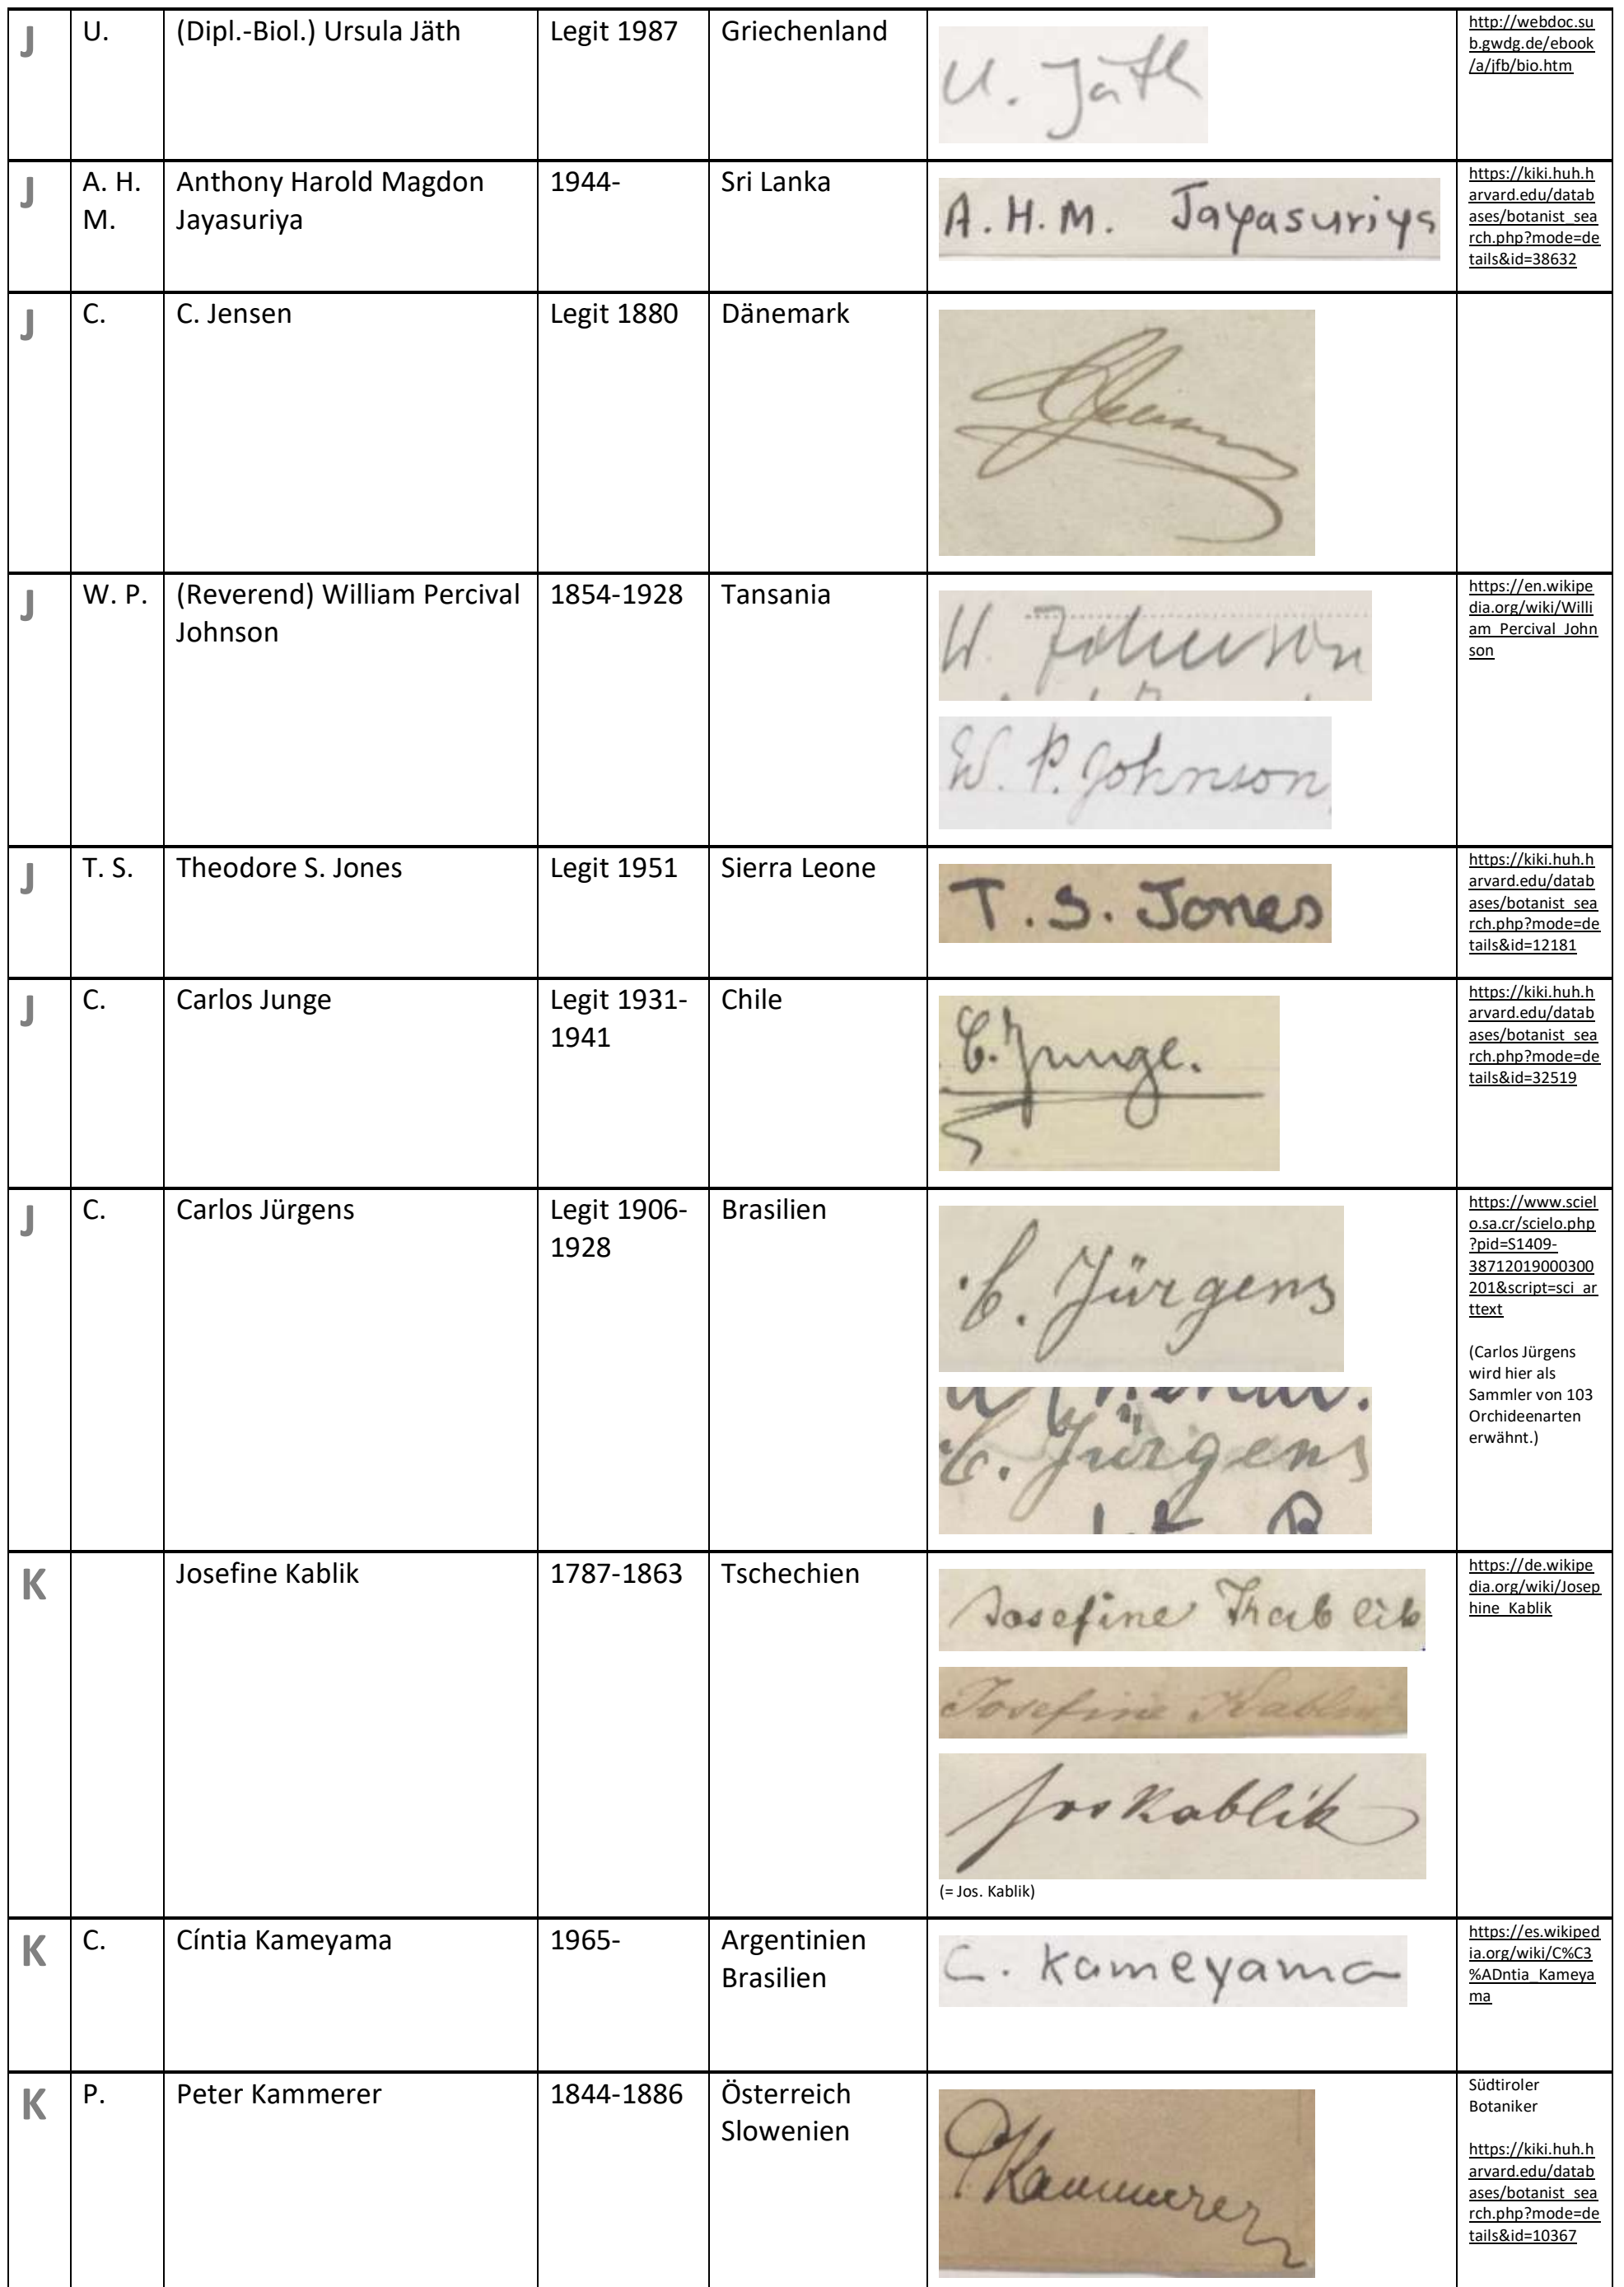 J
U.
(Dipl.-Biol.) Ursula Jäth
Legit 1987
Griechenland
U. Jäth
http://webdoc.su
b.gwdg.de/ebook
/a/jfb/bio.htm
J
A. H.
M.
Anthony Harold Magdon
Jayasuriya
1944-
Sri Lanka
A.H.M. Jayasuriya
https://kiki.huh.h
arvard.edu/datab
ases/botanist_sea
rch.php?mode=de
tails&id=38632
J
C.
C. Jensen
Legit 1880
Dänemark
CJensen
J
W. P.
(Reverend) William Percival
Johnson
1854-1928
Tansania
W. Johnson
W. P. Johnson
https://en.wikipe
dia.org/wiki/Willi
am_Percival_John
son
J
T. S.
Theodore S. Jones
Legit 1951
Sierra Leone
T. S. Jones
https://kiki.huh.h
arvard.edu/datab
ases/botanist_sea
rch.php?mode=de
tails&id=12181
J
C.
Carlos Junge
Legit 1931-
1941
Chile
C. Junge.
https://kiki.huh.h
arvard.edu/datab
ases/botanist_sea
rch.php?mode=de
tails&id=32519
J
C.
Carlos Jürgens
Legit 1906-
1928
Brasilien
C. Jürgens
C. Jürgens
https://www.sciel
o.sa.cr/scielo.php
?pid=S1409-
38712019000300
201&script=sci_ar
ttext
(Carlos Jürgens
wird hier als
Sammler von 103
Orchideenarten
erwähnt.)
K
Josefine Kablik
1787-1863
Tschechien
Josefine Kablik
Josefine Kablik
Jos Kablik
(= Jos. Kablik)
https://de.wikipe
dia.org/wiki/Josep
hine_Kablik
K
C.
Cíntia Kameyama
1965-
Argentinien
Brasilien
C. Kameyama
https://es.wikiped
ia.org/wiki/C%C3
%ADntia_Kameya
ma
K
P.
Peter Kammerer
1844-1886
Österreich
Slowenien
PKammerer
Südtiroler
Botaniker
https://kiki.huh.h
arvard.edu/datab
ases/botanist_sea
rch.php?mode=de
tails&id=10367